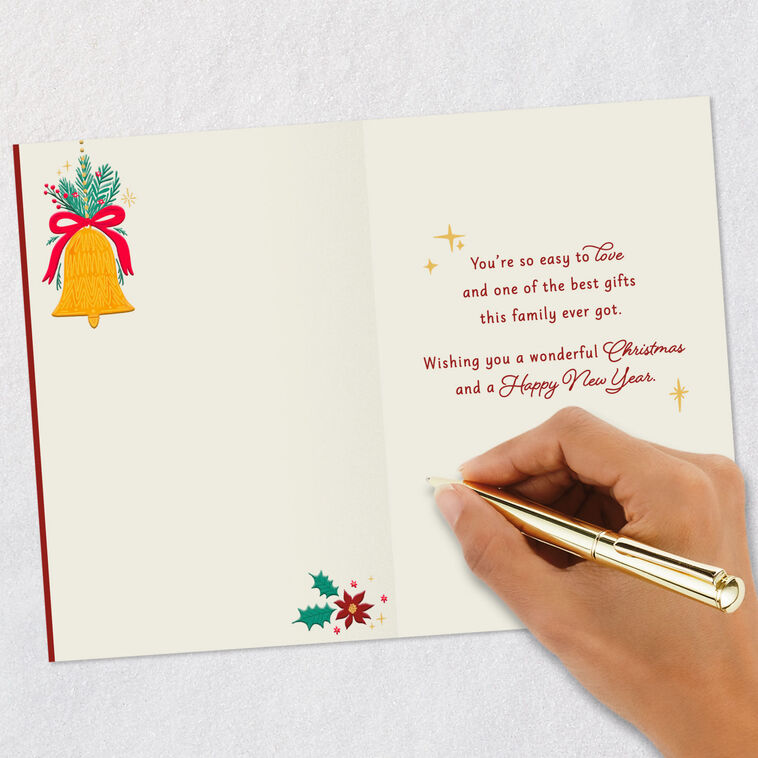 You're so easy to love
and one of the best gifts
this family ever got.
Wishing you a wonderful Christmas
and a Happy New Year.